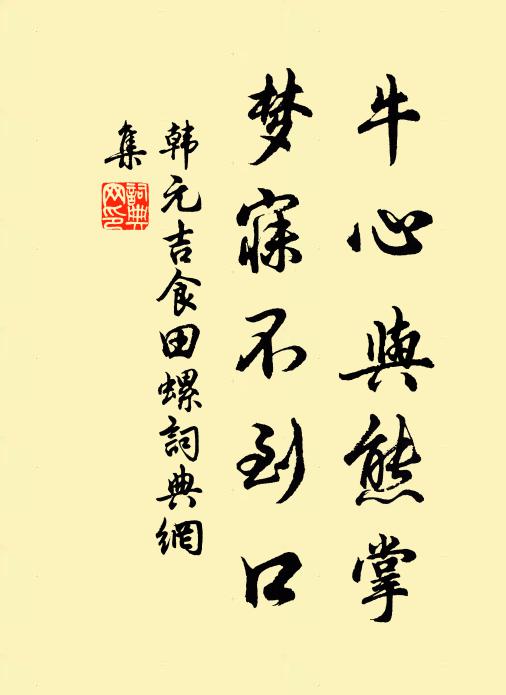 牛心與熊掌
梦寐不到口
韩元吉食田螺詞典網
集
詞典
网印